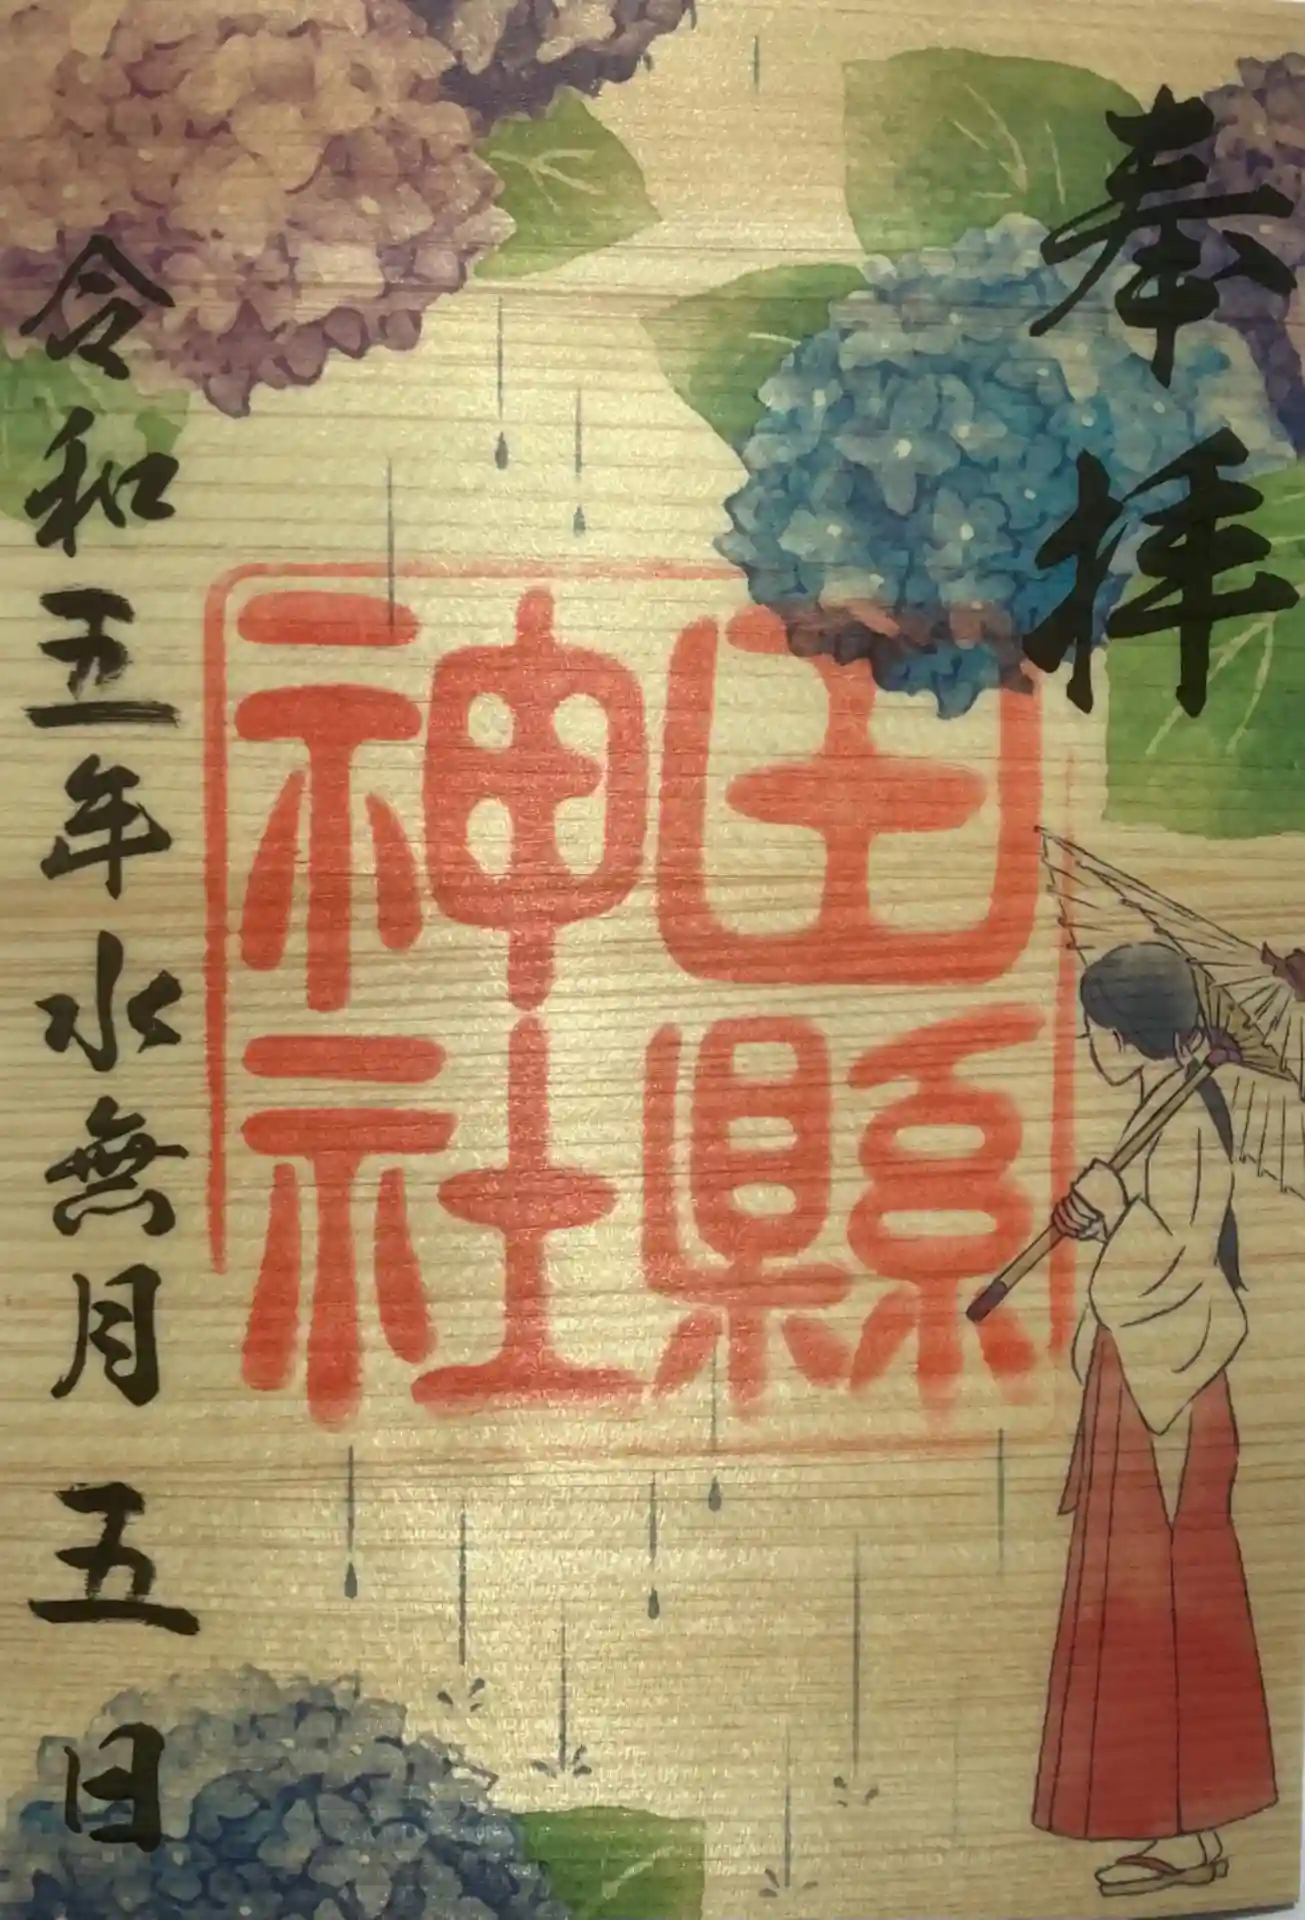 奉拝
田縣
神社
令和五年水無月五日